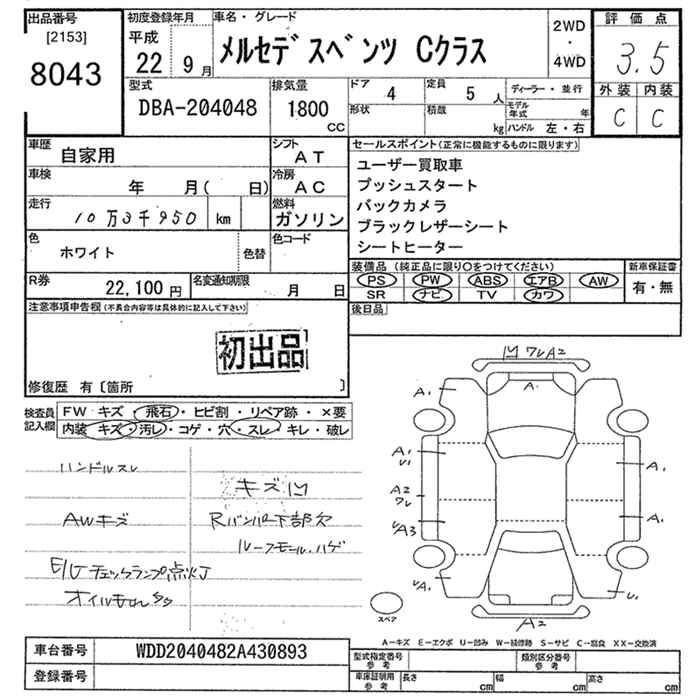 出品番号
[2153]
8043
初度登録年月
平成
22 9月
車名・グレード
メルセデスベンツ Cクラス
2WD
・
4WD
評価点
3.5
外装 内装
C C
型式
DBA-204048
排気量
1800
CC
ドア 4
定員 5人
形状
積載 kg
ディーラー・並行
モデル年式 年
ハンドル 左・右
車歴
自家用
シフト
AT
車検
年 月( 日)
冷房
AC
走行
10万3千950 km
燃料
ガソリン
色
ホワイト
色替
色コード
R券
22,100円
名変通知期限
月 日
セールスポイント(正常に機能するものに限ります)
ユーザー買取車
プッシュスタート
バックカメラ
ブラックレザーシート
シートヒーター
装備品 (純正品に限り○をつけてください)
新車保証書
PS PW ABS エアB AW
有・無
SR ナビ TV カワ
後日品
注意事項申告欄(不具合内容等は具体的に記入して下さい)
初出品
修復歴 有〔箇所 〕
検査員記入欄
FW キズ・飛石・ヒビ割・リペア跡・×要
内装 キズ・汚レ・コゲ・穴・スレ・キレ・破レ
ハンドルスレ
キズ凹
AWキズ
Rバンパ下部欠
ルーフモールハゲ
E/Gチェックランプ点灯
オイルモレ
凹 ワレ A2
A1
A
A1
U1
A1
A2
ワレ
A1
A3
A1
U1
A2
スペア
A−キズ E−エクボ U−凹み W−補修跡 S−サビ C−腐食 XX−交換済
車台番号
WDD2040482A430893
登録番号
型式指定番号
参考
類別区分番号
参考
車庫証明用
参考
長さ cm
幅 cm
高さ cm